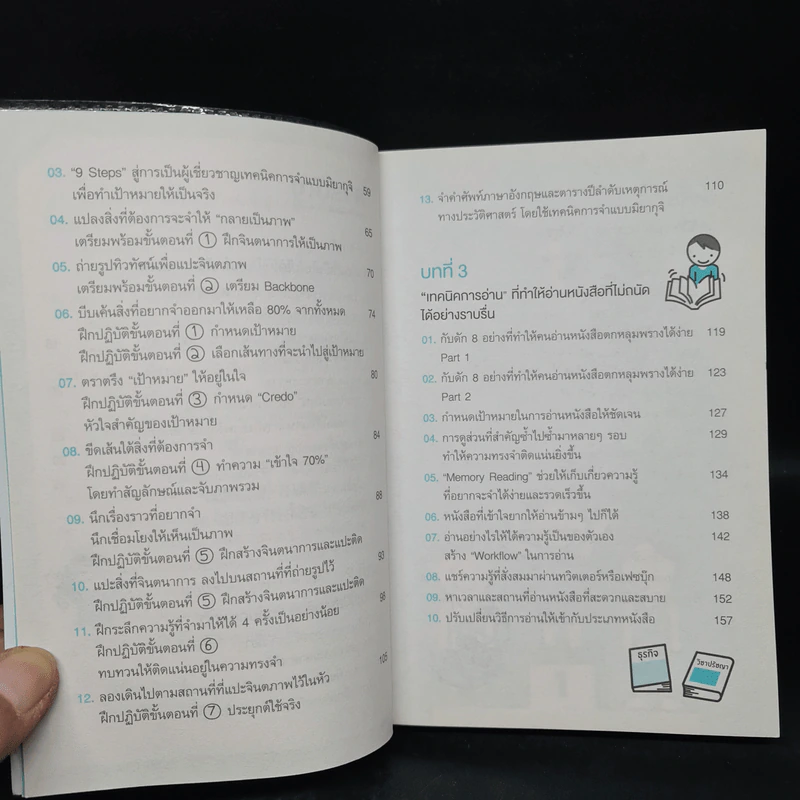 03. “9 Steps” สู่การเป็นผู้เชี่ยวชาญเทคนิคการจำแบบมิยากุจิ 59
เพื่อทำเป้าหมายให้เป็นจริง
04. แปลงสิ่งที่ต้องการจะจำให้ “กลายเป็นภาพ” 65
เตรียมพร้อมขั้นตอนที่ ① ฝึกจินตนาการให้เป็นภาพ
05. ถ่ายรูปทิวทัศน์เพื่อแปะจินตภาพ 70
เตรียมพร้อมขั้นตอนที่ ② เตรียม Backbone
06. บีบเค้นสิ่งที่อยากจำออกมาให้เหลือ 80% จากทั้งหมด 74
ฝึกปฏิบัติขั้นตอนที่ ① กำหนดเป้าหมาย
ฝึกปฏิบัติขั้นตอนที่ ② เลือกเส้นทางที่จะนำไปสู่เป้าหมาย
07. ตราตรึง “เป้าหมาย” ให้อยู่ในใจ 80
ฝึกปฏิบัติขั้นตอนที่ ③ กำหนด “Credo”
หัวใจสำคัญของเป้าหมาย
08. ขีดเส้นใต้สิ่งที่ต้องการจำ 84
ฝึกปฏิบัติขั้นตอนที่ ④ ทำความ “เข้าใจ 70%”
โดยทำสัญลักษณ์และจับภาพรวม
09. นึกเรื่องราวที่อยากจำ 88
นึกเชื่อมโยงให้เห็นเป็นภาพ
ฝึกปฏิบัติขั้นตอนที่ ⑤ ฝึกสร้างจินตนาการและแปะติด
10. แปะสิ่งที่จินตนาการ ลงไปบนสถานที่ที่ถ่ายรูปไว้ 93
ฝึกปฏิบัติขั้นตอนที่ ⑤ ฝึกสร้างจินตนาการและแปะติด
11. ฝึกระลึกความรู้ที่จำมาให้ได้ 4 ครั้งเป็นอย่างน้อย 98
ฝึกปฏิบัติขั้นตอนที่ ⑥
ทบทวนให้ติดแน่นอยู่ในความทรงจำ
12. ลองเดินไปตามสถานที่ที่แปะจินตภาพไว้ในหัว 105
ฝึกปฏิบัติขั้นตอนที่ ⑦ ประยุกต์ใช้จริง
13. จำคำศัพท์ภาษาอังกฤษและตารางปีลำดับเหตุการณ์ 110
ทางประวัติศาสตร์ โดยใช้เทคนิคการจำแบบมิยากุจิ
บทที่ 3
“เทคนิคการอ่าน” ที่ทำให้อ่านหนังสือที่ไม่ถนัด
ได้อย่างราบรื่น
01. กับดัก 8 อย่างที่ทำให้คนอ่านหนังสือตกหลุมพรางได้ง่าย 119
Part 1
02. กับดัก 8 อย่างที่ทำให้คนอ่านหนังสือตกหลุมพรางได้ง่าย 123
Part 2
03. กำหนดเป้าหมายในการอ่านหนังสือให้ชัดเจน 127
04. การดูส่วนที่สำคัญซ้ำไปซ้ำมาหลายๆ รอบ 129
ทำให้ความทรงจำติดแน่นยิ่งขึ้น
05. “Memory Reading” ช่วยให้เก็บเกี่ยวความรู้ 134
ที่อยากจะจำได้ง่ายและรวดเร็วขึ้น
06. หนังสือที่เข้าใจยากให้อ่านข้ามๆ ไปก็ได้ 138
07. อ่านอย่างไรให้ได้ความรู้เป็นของตัวเอง 142
สร้าง “Workflow” ในการอ่าน
08. แชร์ความรู้ที่สั่งสมมาผ่านทวิตเตอร์หรือเฟซบุ๊ก 148
09. หาเวลาและสถานที่อ่านหนังสือที่สะดวกและสบาย 152
10. ปรับเปลี่ยนวิธีการอ่านให้เข้ากับประเภทหนังสือ 157
ธุรกิจ
วิชาปรัชญา